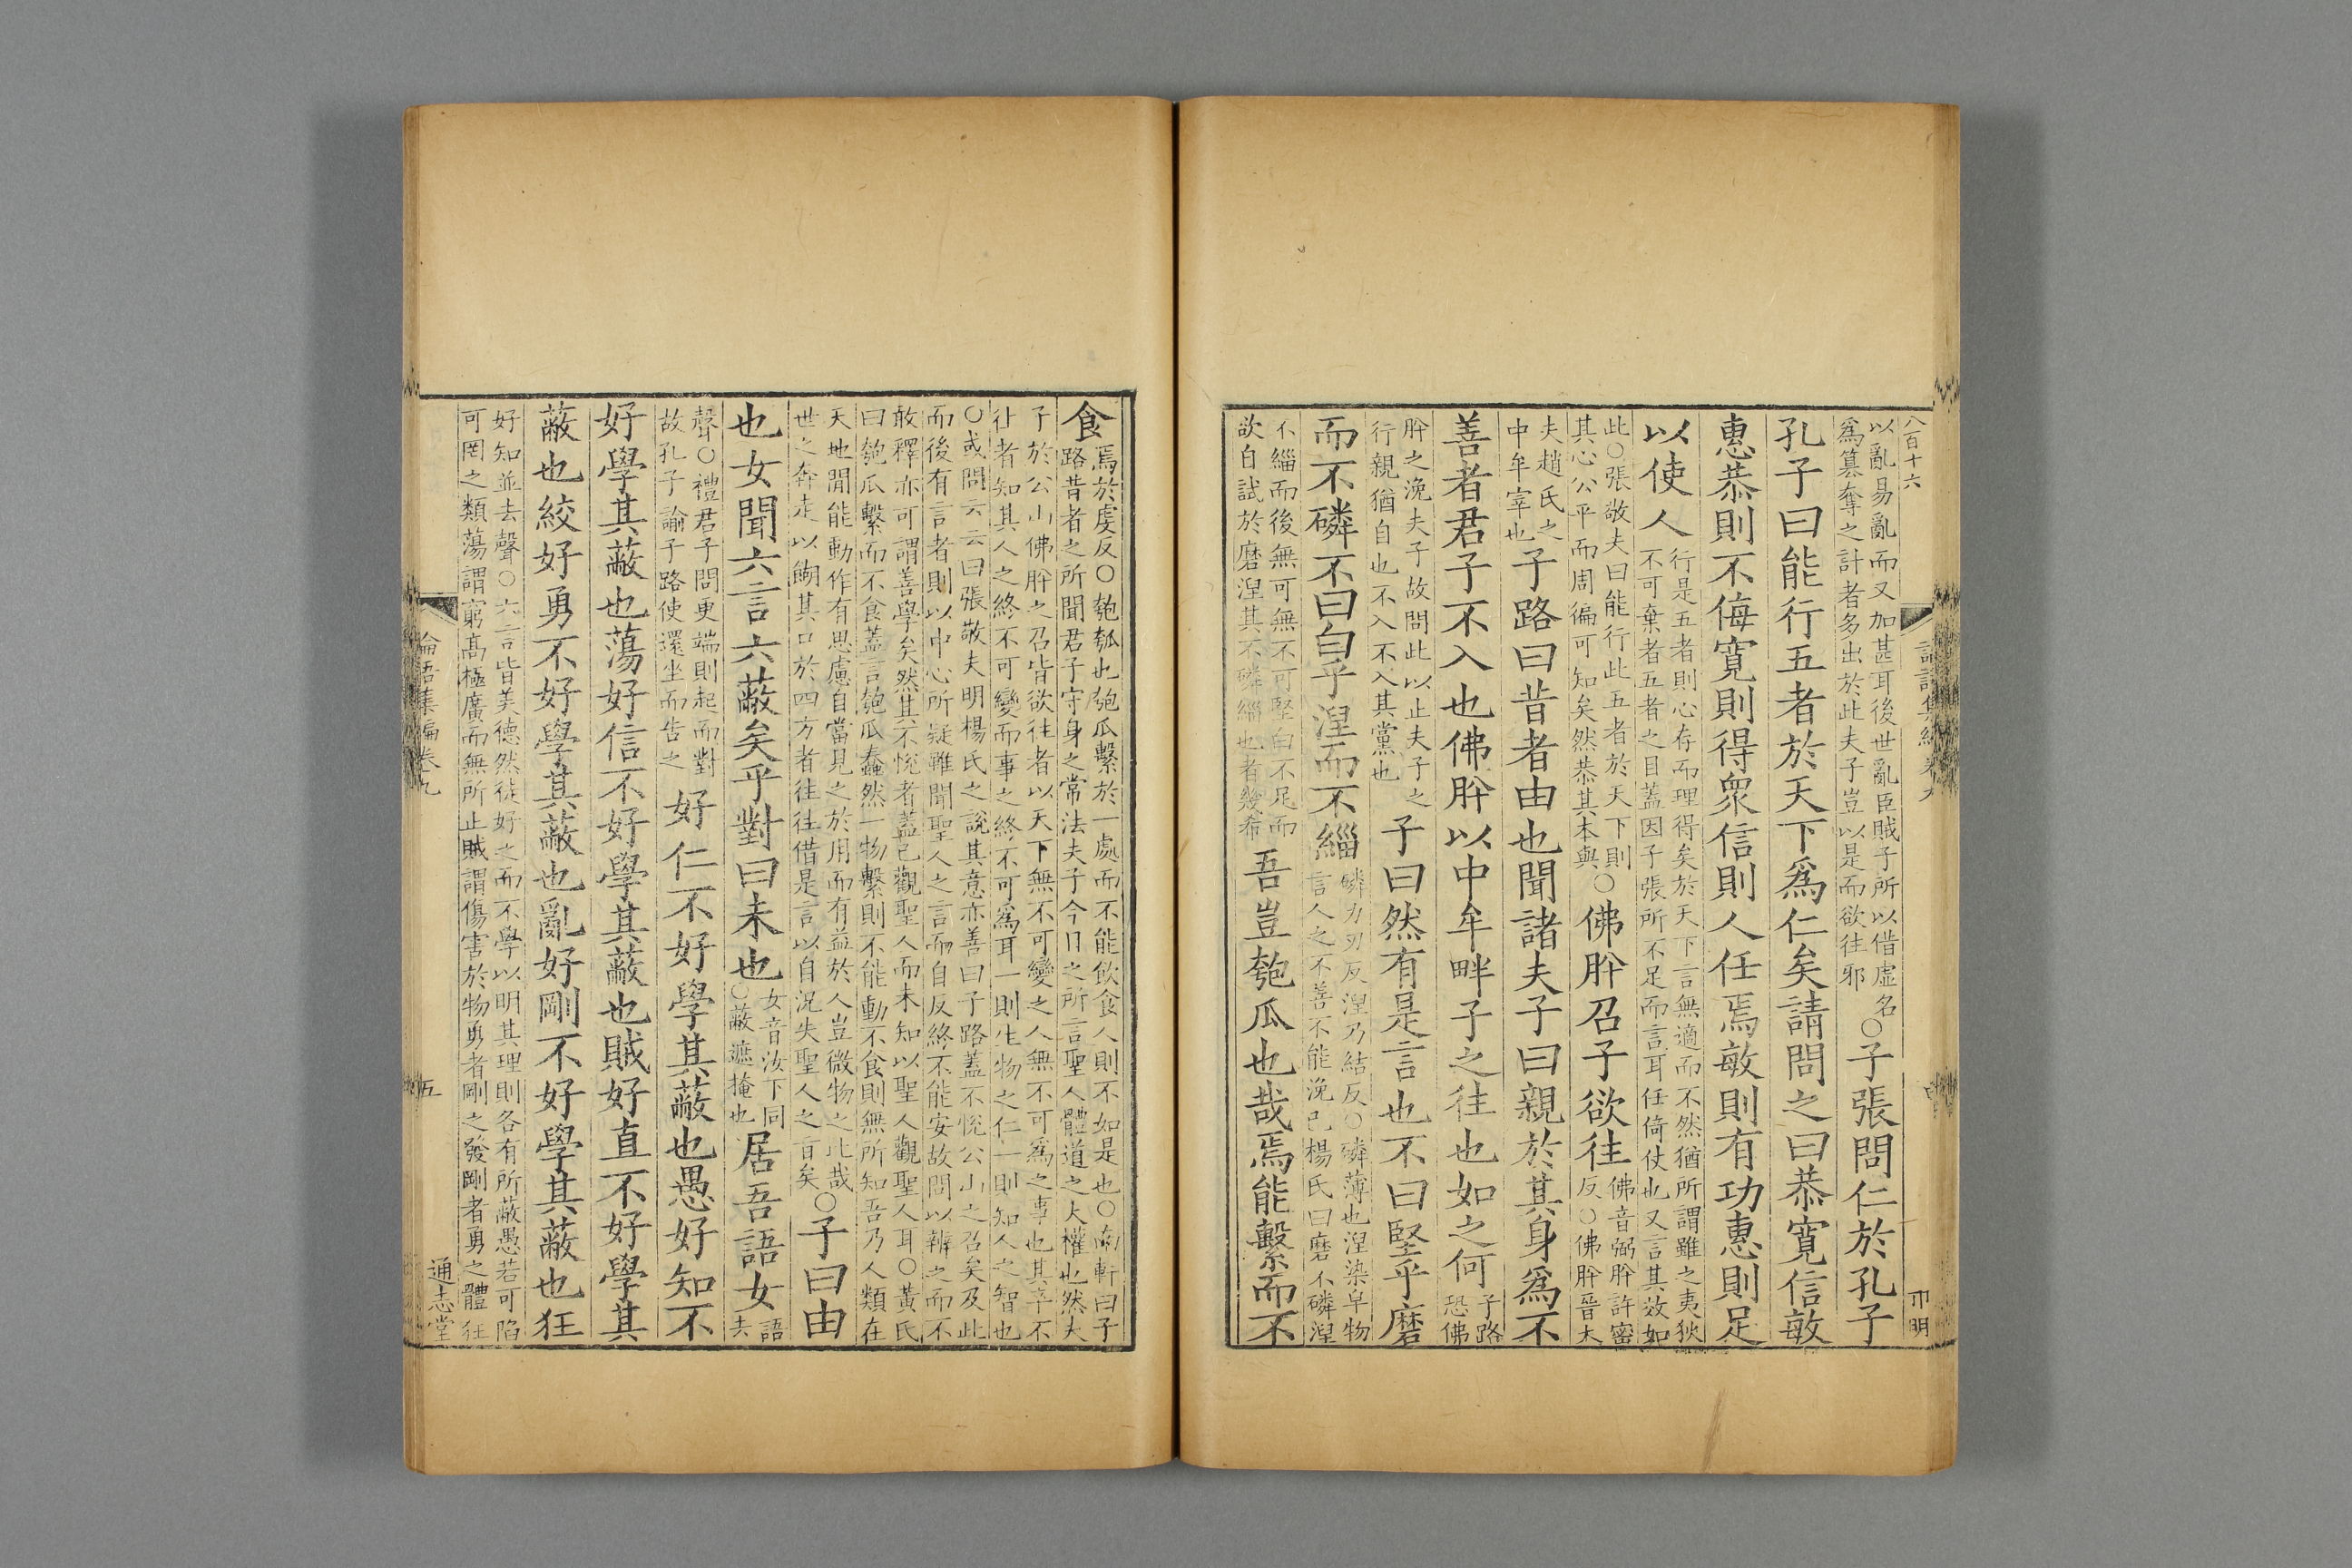 八百十六
以亂易亂而又加甚耳後世亂臣賊子所以借虛名
爲簒奪之計者多出於此夫子豈以是而欲往邪
○子張問仁於孔子
孔子曰能行五者於天下爲仁矣請問之曰恭寬信敏
惠恭則不侮寬則得衆信則人任焉敏則有功惠則足
以使人
行是五者則心存而理得矣於天下言無適而不然猶所謂雖之夷狄
不可棄者五者之目蓋因子張所不足而言耳任倚仗也又言其效如
此○張敬夫曰能行此五者於天下則
其心公平而周徧可知矣然恭其本與
○佛肸召子欲往
佛音弼肸許密
反○佛肸晉大
夫趙氏之
中牟宰也
子路曰昔者由也聞諸夫子曰親於其身爲不
善者君子不入也佛肸以中牟畔子之往也如之何
子路
恐佛
肸之浼夫子故問此以止夫子之
行親猶自也不入不入其黨也
子曰然有是言也不曰堅乎磨
而不磷不曰白乎涅而不緇
磷力刃反涅乃結反○磷薄也涅染皁物
言人之不善不能浼己楊氏曰磨不磷涅
不緇而後無可無不可堅白不足而
欲自試於磨涅其不磷緇也者幾希
吾豈匏瓜也哉焉能繫而不
食
焉於虔反○匏瓠也匏瓜繫於一處而不能飲食人則不如是也○南軒曰子
路昔者之所聞君子守身之常法夫子今日之所言聖人體道之大權也然夫
子於公山佛肸之召皆欲往者以天下無不可變之人無不可爲之事也其卒不
往者知其人之終不可變而事之終不可爲耳一則生物之仁一則知人之智也
○或問云云曰張敬夫明楊氏之說其意亦善曰子路蓋不悅公山之召矣及此
而後有言者則以中心所疑雖聞聖人之言而自反終不能安故問以辨之而不
敢釋亦可謂善學矣然其不悅者蓋己觀聖人而未知以聖人觀聖人耳○黃氏
曰匏瓜繫而不食蓋言匏瓜蠢然一物繫則不能動不食則無所知吾乃人類在
天地間能動作有思慮自當見之於用而有益於人豈微物之比哉
世之奔走以餬其口於四方者往往借是言以自況失聖人之旨矣
○子曰由
也女聞六言六蔽矣乎對曰未也
女音汝下同
○蔽遮掩也
居吾語女
語
去
聲○禮君子問更端則起而對
故孔子諭子路使還坐而告之
好仁不好學其蔽也愚好知不
好學其蔽也蕩好信不好學其蔽也賊好直不好學其
蔽也絞好勇不好學其蔽也亂好剛不好學其蔽也狂
好知並去聲○六言皆美德然徒好之而不學以明其理則各有所蔽愚若可陷
可罔之類蕩謂窮高極廣而無所止賊謂傷害於物勇者剛之發剛者勇之體狂
論語集編卷九
五
通志堂